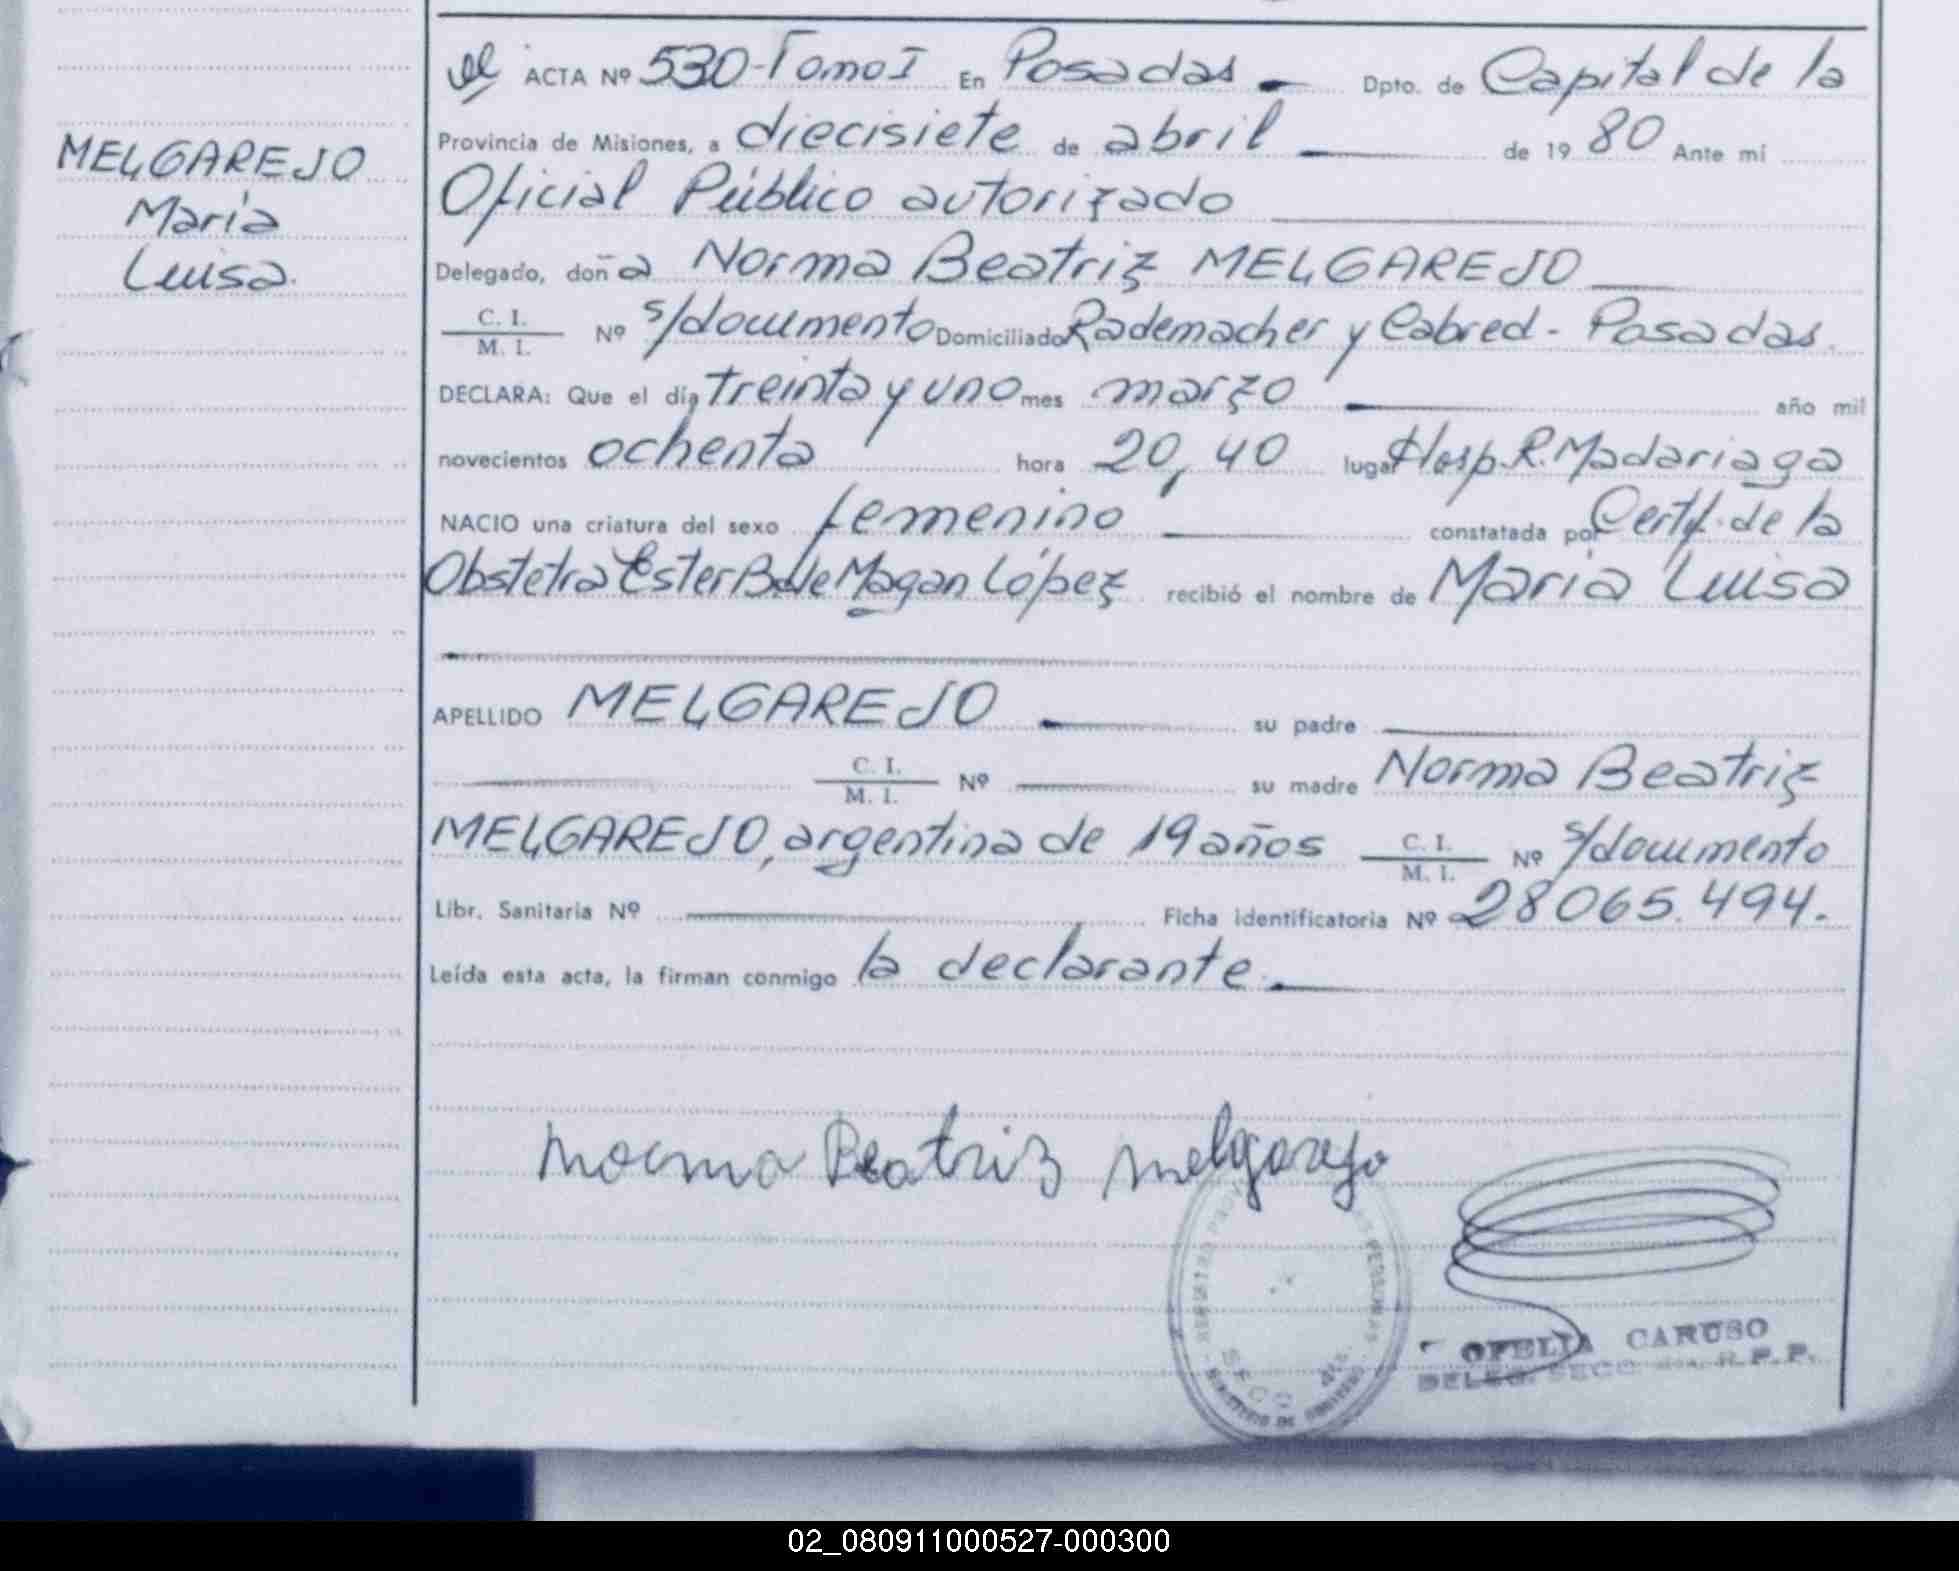 MELGAREJO
María
Luisa.
ACTA Nº 530-Tomo I En Posadas Dpto. de Capital de la
Provincia de Misiones, a diecisiete de abril de 1980 Ante mi
Oficial Público autorizado
Delegado, doña Norma Beatriz MELGAREJO
C. I. / M. I. Nº s/documento Domiciliado Rademacher y Cabred - Posadas.
DECLARA: Que el día treinta y uno mes marzo año mil
novecientos ochenta hora 20,40 lugar Hosp. R. Madariaga
NACIO una criatura del sexo femenino constatada por Certf. de la
Obstetra Ester B. de Magan López recibió el nombre de María Luisa
APELLIDO MELGAREJO su padre
C. I. / M. I. Nº su madre Norma Beatriz
MELGAREJO, argentina de 19 años C. I. / M. I. Nº s/documento
Libr. Sanitaria Nº Ficha identificatoria Nº 28065.494.
Leída esta acta, la firman conmigo la declarante.
Norma Beatriz Melgarejo
OFELIA CARUSO
DELEG. SECC. R.P.P.
02_080911000527-000300